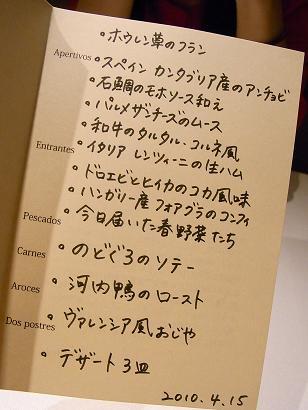 。ホウレン草のフラン
Apertivos 。スペイン カンタブリア産のアンチョビ
。石鯛のモホソース和え
。パルメザンチーズのムース
。和牛のタルタル・コルネ風
Entrantes 。イタリア レンツィーニの生ハム
。ドロエビとヒイカのコカ風味
。ハンガリー産フォアグラのコンフィ
Pescados 。今日届いた春野菜たち
Carnes 。のどぐろのソテー
Aroces 。河内鴨のロースト
Dos postres 。ヴァレンシア風おじや
。デザート3皿
2010.4.15